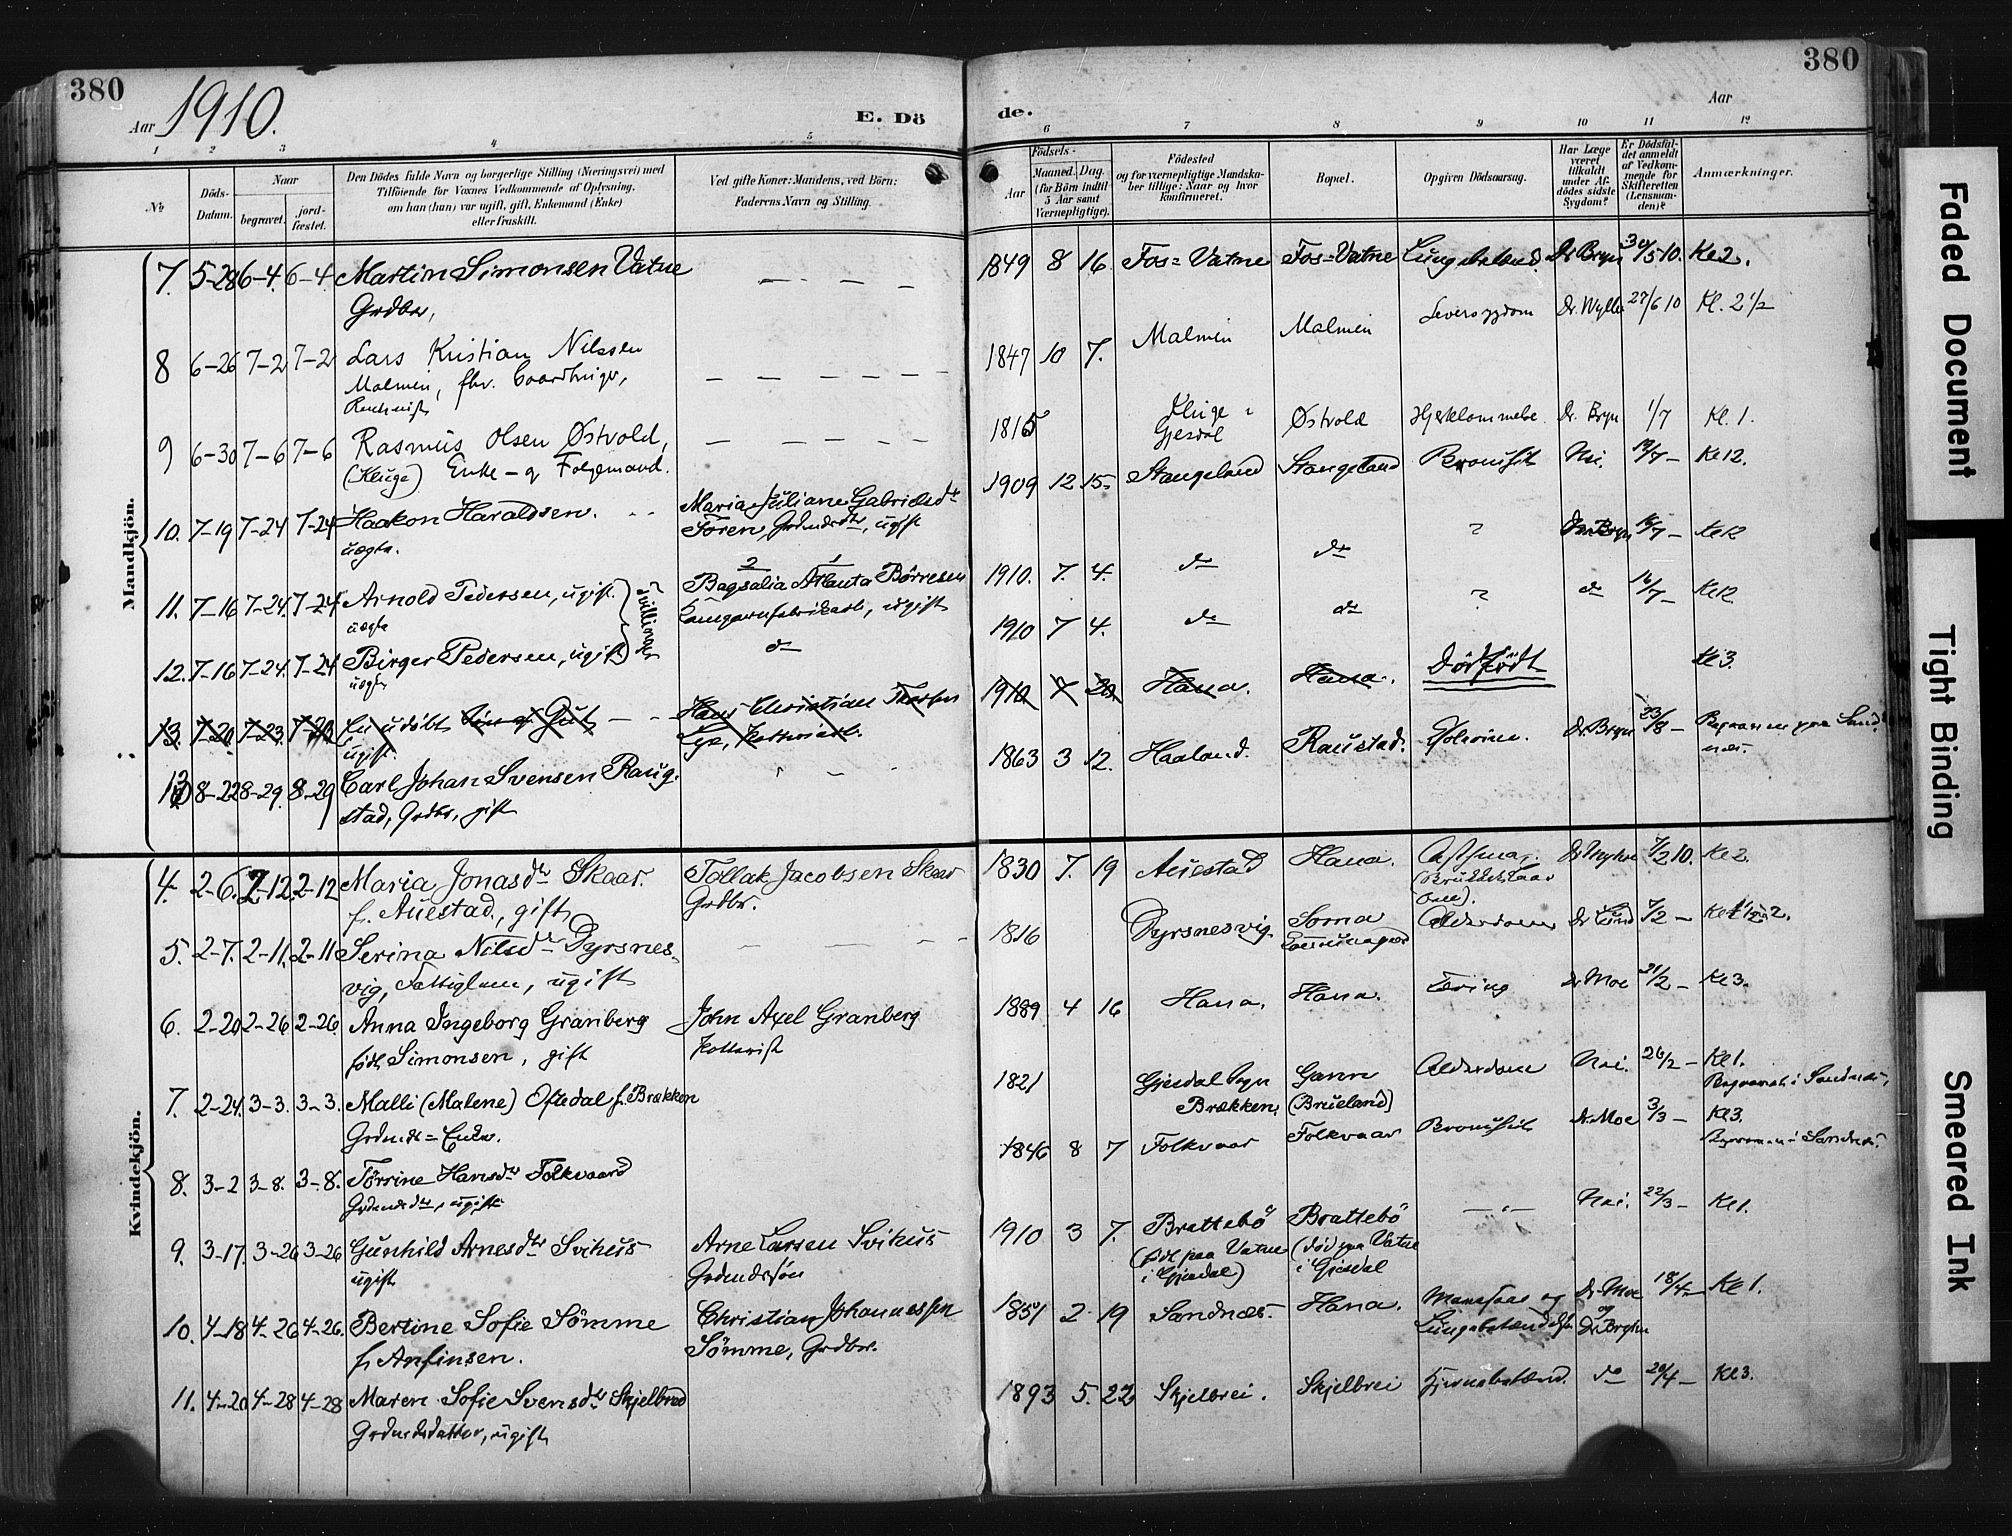 380
380
1910.
Aar
E. Dö
de.
Aar
1 2 3 4 5 6 7 8 9 10 11 12
No
Döds-
Datum.
Naar
begravet.
jord-
fæstet.
Den Dödes fulde Navn og borgerlige Stilling (Næringsvei) med
Tilföiende for Voxnes Vedkommende af Oplysning,
om han (hun) var ugift, gift, Enkemand (Enke)
eller fraskilt.
Ved gifte Koner: Mandens, ved Börn:
Faderens Navn og Stilling.
Födsels-
Aar
Maaned.
Dag.
(for Börn indtil
5 Aar samt
Værnepligtige).
Födested
og for værnepligtige Mandska-
ber tillige: Naar og hvor
konfirmeret.
Bopæl.
Opgiven Dödsaarsag.
Har Læge
været
tilkaldt
under Af-
dödes sidste
Sygdom?
Er Dödsfal-
det anmeldt
af Vedkom-
mende for
Skifteretten
(Lensman-
den)?
Anmærkninger.
Mandkjön.
7. 5-28 6-4. 6-4. Martin Simonsen Vatne 1849 8 16 Fos=Vatne Fos=Vatne Lungebetænd. Dr Bryn 30/5 10. Kl 2.
Grdbr,
8 6-26 7-2 7-2 Lars Kristian Nilssen 1847 10 7. Malmin Malmin Leversygdom Dr. Wylle 27/6 10 Kl. 2 1/2
Malmin, fhv.
9 6-30 7-6 7-6 Rasmus Olsen Østvold, 1815 Kluge Østvold Dr. Bryn 1/7 Kl. 1.
Gjesdal
(Kluge) Enke- og Folgemand.
10. 7-19 7-24 7-24 Haakon Haraldsen. Maria Juliane Gabrielsdtr 1909 12 15. Stangeland Stangeland Bronchit Nei. Kl 12.
uægte. Foren, ugift
11. 7-16 7-24. 7-24 Arnold Pedersen, ugift. Bagsalia Atlanta Börresen 1910. 7. 4. do do ? Kl 12
uægte ugift
Tvillinger
12. 7-16 7-24. 7-24 Birger Pedersen, ugift do 1910 7 4. do do ? do 16/7 - Kl 12
uægte
13. 7-20 7-23. En udöbt Gut Hans Christian 1910 7 20 Hana. Hana. Dödfödt Kl 3.
ugift.
13 8-22 8-29. 8-29 Carl Johan Svensen Raug- 1863 3 12. Haaland. Raustad. Dr Bryn 23/8 -
stad, Grdbr, gift
Kvindekjön.
4. 2-6. 2-12 2-12 Maria Jonasdtr Skaar. Tollak Jacobsen Skaar 1830 7. 19 Auestad Hana. Asthma. 7/2 10. Kl 2.
f. Auestad, gift Grdbr.
5. 2-7. 2-11. 2-11 Serina Nilsdtr Dyrsnes- 1816 Dyrsnesvig. Soma Alderdom Dr Lund 7/2 -
vig, Fattiglem, ugift
6. 2-20 2-26 2-26 Anna Ingeborg Granberg John Axel Granberg 1889 4 16 Hana. Hana. Tæring Dr Moe 21/2 - Kl 3.
född Simonsen, gift
7. 2-24. 3-3. 3-3. Malli (Malene) Oftedal f. Brækken 1821 Gjesdal Sogn Gann Alderdom Nei. 26/2 - Kl 1.
Brækken. (Brueland) Begravet i Sandnæs.
Grdmds=Enke.
8. 3-2 3-8. 3-8. Törrine Hansdtr Folkvaard 1846 8 7 Folkvaar Folkvaar Bronchit Dr. Moe 3/3 - Kl 3.
ugift
9. 3-17. 3-26 3-26 Gunhild Arnesdtr Svihus Arne Larsen Svihus 1910 3 7. Brattebö Brattebö Nei. 22/3 - Kl 1.
ugift Grdmdssön (födt paa Vatne (död paa Vatne
i Gjesdal) i Gjesdal
10. 4-18 4-26 4-26. Bertine Sofie Sömme Christian Johannessen 1851 2 19 Sandnæs. Hana. og Dr. Moe 18/4 Kl 1.
f. Anfinsen. Sömme, Grdbr. og
11. 4-20 4-28 4-28 Maren Sofie Svensdtr Skjelbred 1893 5. 22 Skjelbrei. Skjelbrei Hjernebetænd. do 20/4 - Kl 3.
Grdmdsdatter, ugift
Faded Document
Tight Binding
Smeared Ink